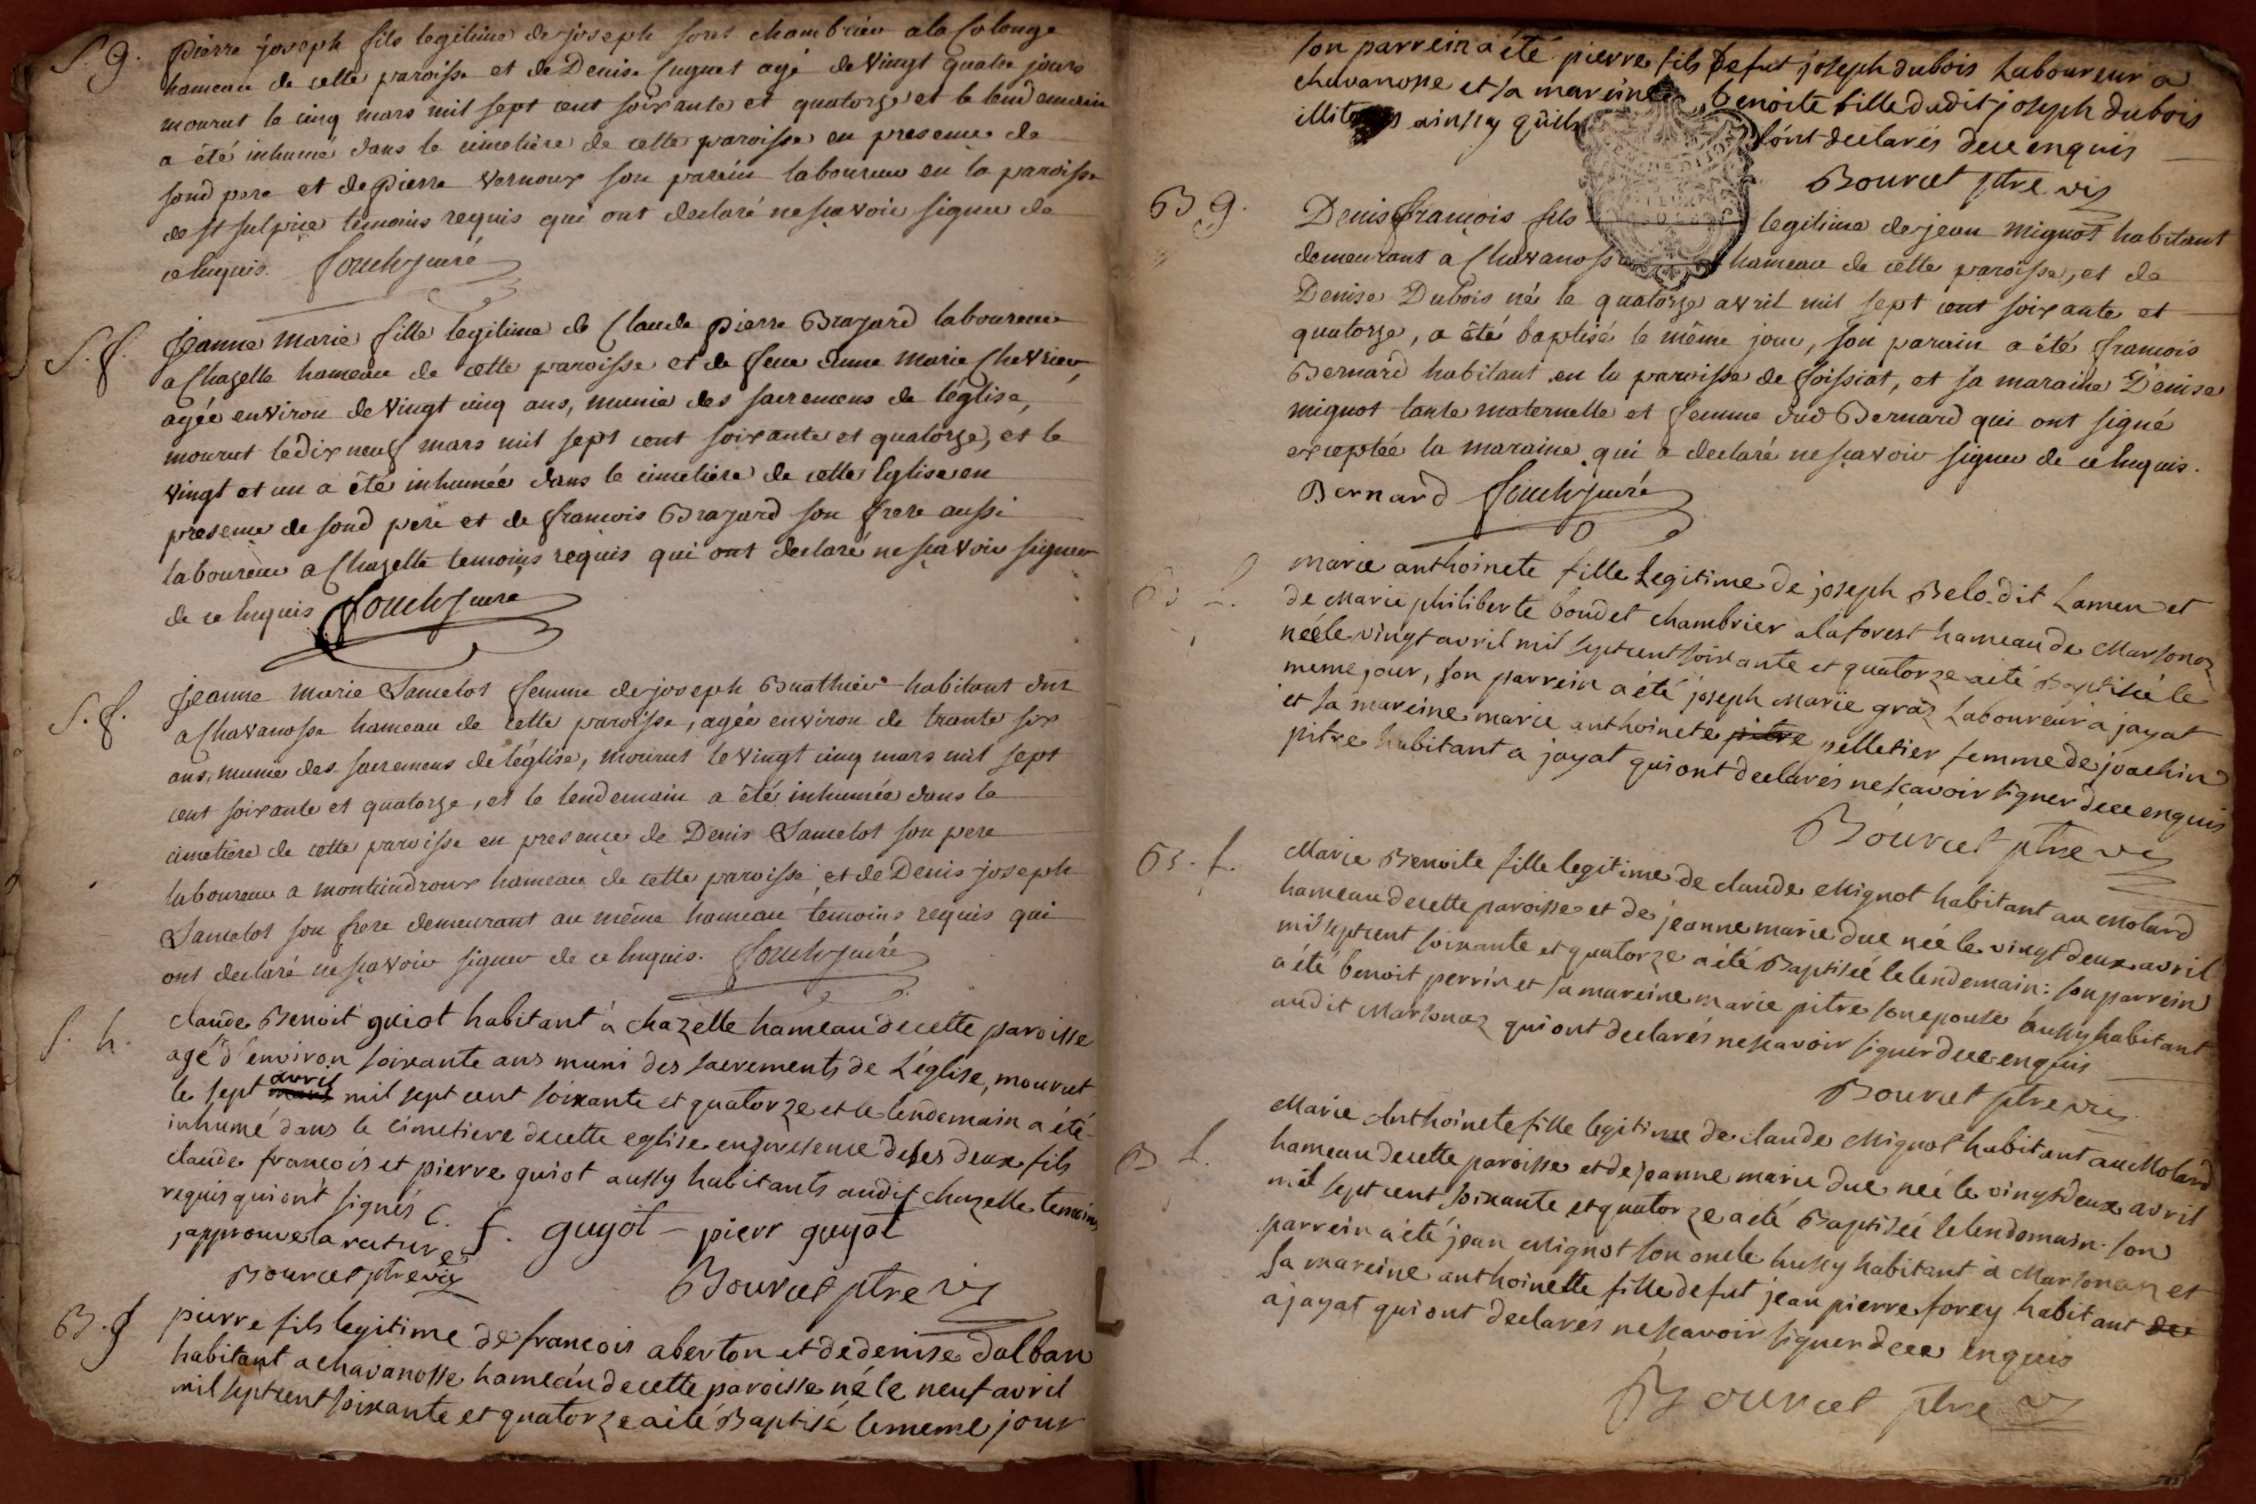 S. g. pierre joseph fils legitime de joseph sont chambrier a la Colonge
hameau de cette paroisse et de Denise Cuguet agé de vingt quatre jours
mourut le cinq mars mil sept cent soixante et quatorze et le lendemain
a été inhumé dans le cimetière de cette paroisse en presence de
sond pere et de pierre vernoux son parain laboureur en la paroisse
de st sulpice temoins requis qui ont declaré ne sçavoir signer de
ce Enquis. curé
S. f. Jeanne marie fille legitime de Claude pierre Brazard laboureur
a Chazelle hameau de cette paroisse et de feue anne marie Chevrier,
agée environ de vingt cinq ans, munie des sacremens de l'église,
mourut le dix neuf mars mil sept cent soixante et quatorze, et le
vingt et un a été inhumée dans le cimetière de cette Eglise en
presence de sond pere et de françois Brazard son frere aussi
laboureur a Chazelle temoins requis qui ont declaré ne sçavoir signer
de ce Enquis curé
S. f. Jeanne marie Famelot femme de joseph Buathier habitant
a Chavanosse hameau de cette paroisse, agée environ de trante six
ans, munie des sacremens de l'église, mourut le vingt cinq mars mil sept
cent soixante et quatorze, et le lendemain a été inhumée dans le
cimetière de cette paroisse en presence de Denis Famelot son pere
laboureur a montcindroux hameau de cette paroisse et de Denis joseph
Famelot son frere demeurant au même hameau temoins requis qui
ont declaré ne sçavoir signer de ce Enquis. curé
S. h. claude Benoit guiot habitant a chazelle hameau de cette paroisse
agé d'environ soixante ans muni des sacrements de L'église, mourut
le sept avril mil sept cent soixante et quatorze et le lendemain a été
inhumé dans le cimetiere de cette eglise en presence de ses deux fils
claude françois et pierre guiot aussy habitants audit chazelle temoins
requis qui ont signés C. f. guyot - pierr guyot
japprouve la rature
Bourcet ptre vic Bourcet ptre vic
B. g pierre fils legitime de françois aberton et de denise dalban
habitant a chavanosse hameau de cette paroisse né le neuf avril
mil sept cent soixante et quatorze a été Baptisé le meme jour
son parrein a été pierre fils de fut joseph dubois Laboureur a
chavanosse et sa mareine Benoite fille dudit joseph dubois
ainssy qu'ils sont declarés de ce enquis
Bourcet ptre vic
B g. Denis françois fils legitime de jean mignot habitant
demeurant a Chavanosse hameau de cette paroisse, et de
Denise Dubois né le quatorze avril mil sept cent soixante et
quatorze, a été baptisé le même jour, son parain a été françois
Bernard habitant en la paroisse de foissiat, et sa maraine Denise
mignot tante maternelle et femme dud Bernard qui ont signé
exceptée la maraine qui a declaré ne sçavoir signer de ce Enquis.
Bernard curé
B f. marie anthoinete fille Legitime de joseph Belo dit Lamen et
de Marie philiberte boudet chambrier a la forest hameau de Marsonaz
née le vingt avril mil sept cent soixante et quatorze a été Baptisée le
meme jour, son parrein a été joseph Marie graz Laboureur a jayat
et sa mareine marie anthoinete pitre pelletier femme de joachin
pitre habitant a jayat qui ont declarés ne scavoir signer de ce enquis
Bourcet ptre vic
B. f. Marie Benoite fille legitime de claude Mignot habitant au Molard
hameau de cette paroisse et de jeanne marie duc née le vingt deux avril
mil sept cent soixante et quatorze a été Baptisée le lendemain: son parrein
a été benoit perrin et sa mareine marie pitre son epouse aussy habitant
audit Marsonaz qui ont declarés ne scavoir signer de ce enquis
Bourcet ptre vic
B f. Marie Anthoinete fille legitime de claude Mignot habitant au Molard
hameau de cette paroisse et de jeanne marie duc née le vingt deux avril
mil sept cent soixante et quatorze a été Baptisée le lendemain. son
parrein a été jean Mignot son oncle aussy habitant a Marsonaz et
sa mareine anthoinette fille de fut jean pierre forey habitant de
a jayat qui ont declarés ne scavoir signer de ce enquis
Bourcet ptre vic